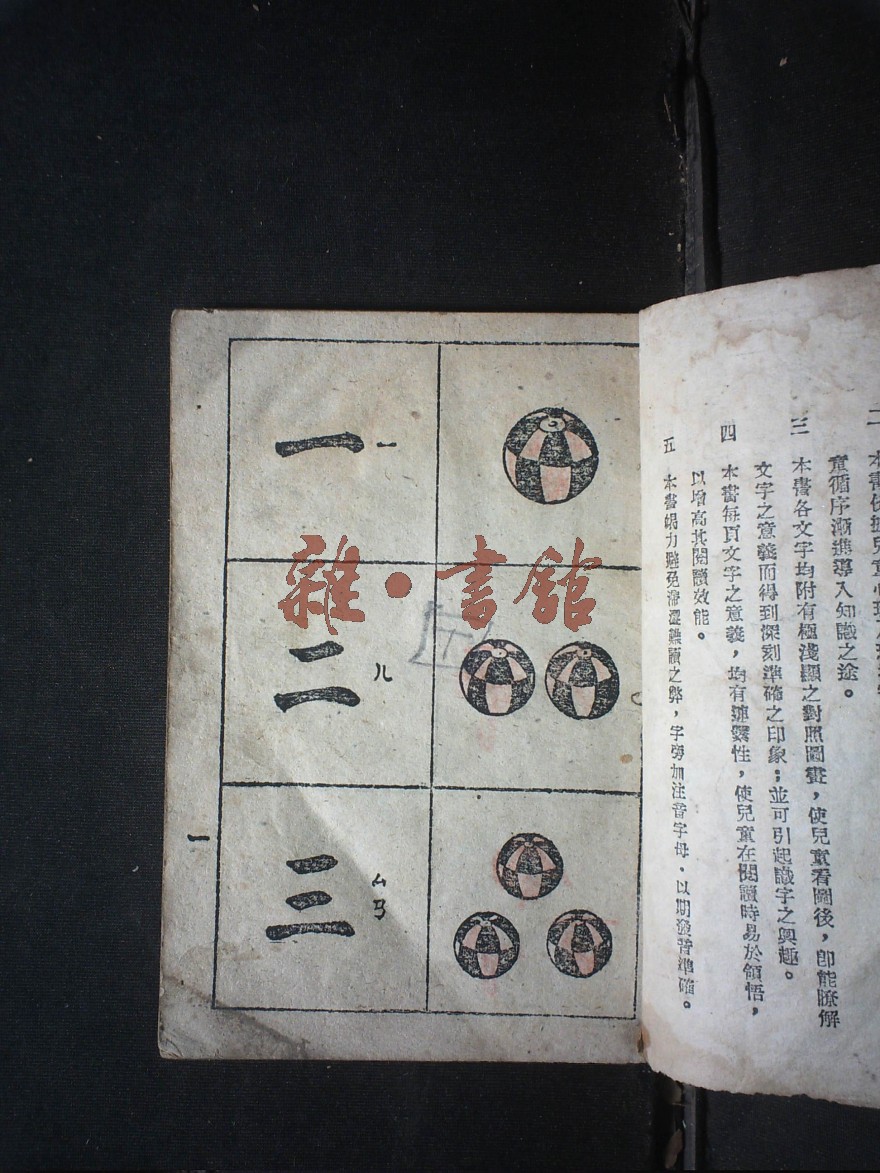 二　本書依據兒童心理
童循序漸進導入知識之途。
三　本書各文字均附有極淺顯之對照圖畫，使兒童看圖後，卽能瞭解
文字之意義而得到深刻準確之印象；並可引起識字之興趣。
四　本書每頁文字之意義，均有連繫性，使兒童在閱讀時易於領悟，
以增高其閱讀效能。
五　本書竭力避免滯澀難讀之弊，字旁加注音字母，以期發音準確。
一 ㄧ
二 ㄦ
三 ㄙㄢ
一
雜·書館